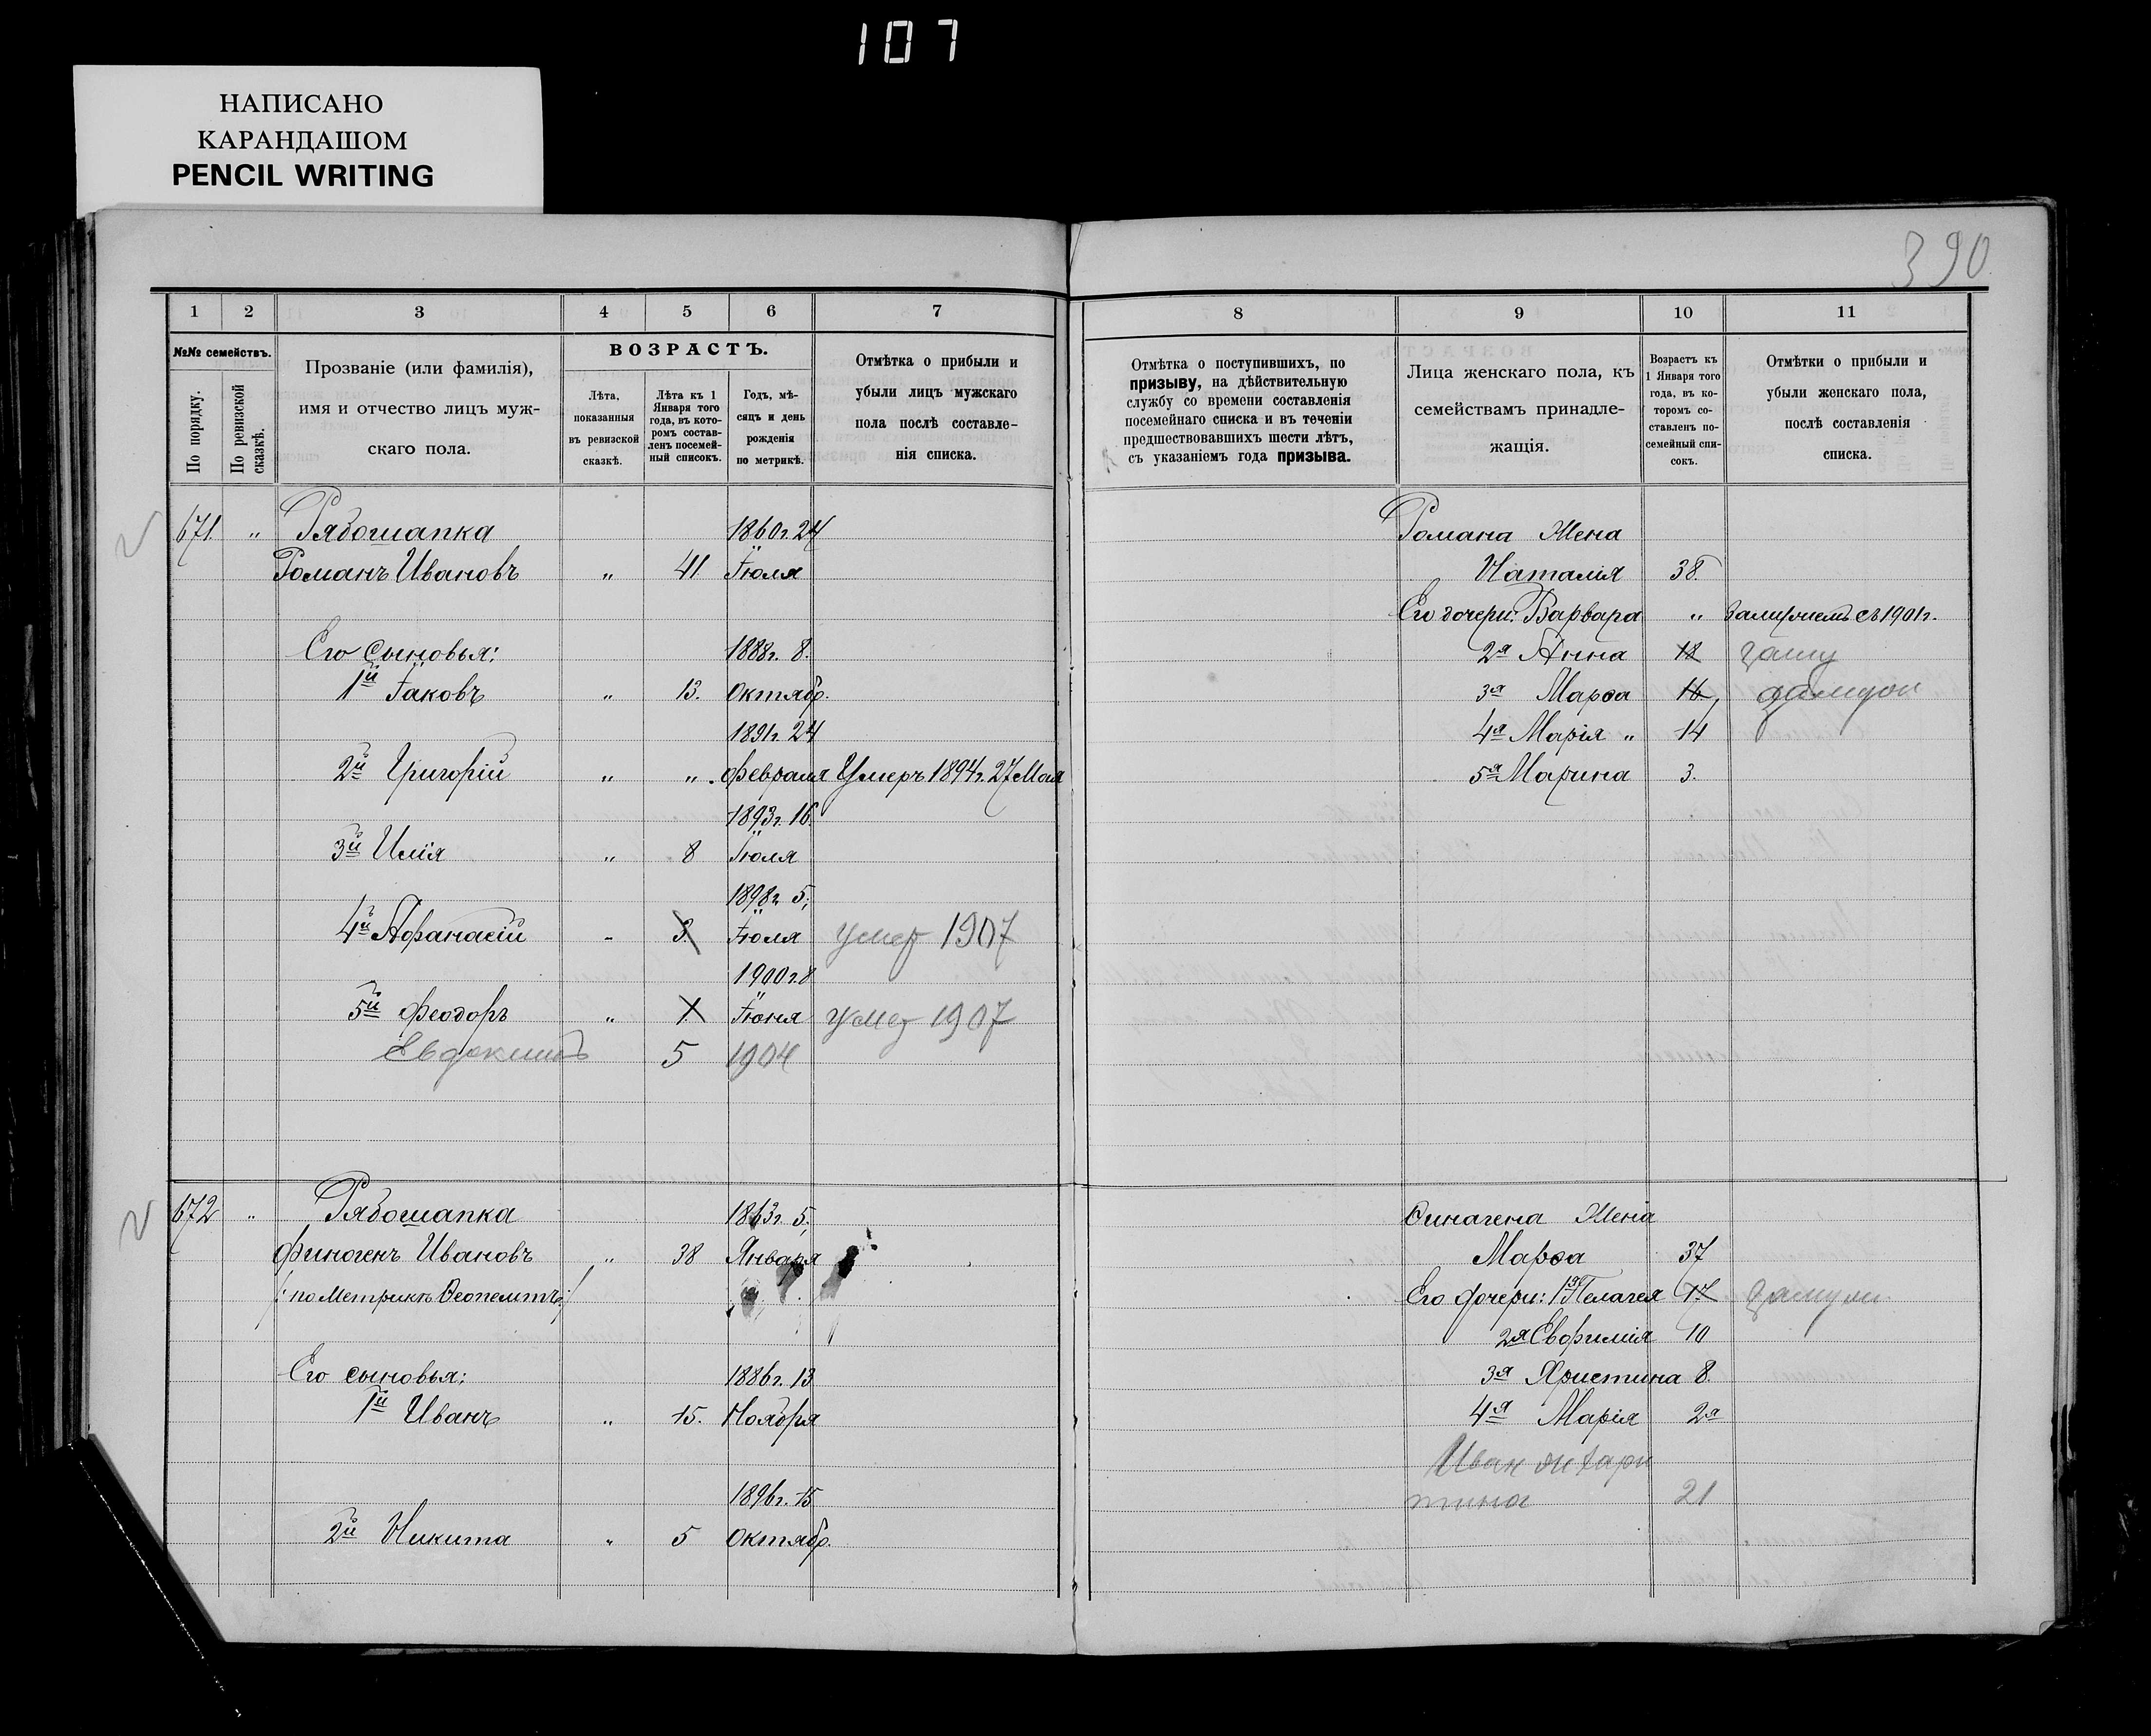 107
НАПИСАНО
КАРАНДАШОМ
PENCIL WRITING
390
1 2 3 4 5 6 7
№№ семействъ.
По порядку.
По ревизской сказкѣ.
Прозваніе (или фамилія),
имя и отчество лицъ муж-
скаго пола.
ВОЗРАСТЪ.
Лѣта,
показанныя
въ ревизской
сказкѣ.
Лѣта къ 1
Января того
года, въ кото-
ромъ состав-
ленъ посемей-
ный списокъ.
Годъ, мѣ-
сяцъ и день
рожденія
по метрикѣ.
Отмѣтка о прибыли и
убыли лицъ мужскаго
пола послѣ составле-
нія списка.
671. " Рябошапка 1860г. 24
Романъ Ивановъ " 41 Іюля
Его сыновья: 1888г. 8.
1й Іаковъ " 13. Октябр.
1891г. 24
2й Григорій " " Февраля Умеръ 1894г. 27 Мая
1893г. 16.
3й Илія " 8 Іюля
1898г. 5.
4й Афанасій " 3. Іюля умер 1907
1900г. 8
5й Феодоръ " 1. Іюня умер 1907
Евдокимъ 5 1904
672 " Рябошапка 1863г. 5.
Финогенъ Ивановъ " 38 Января
/: по Метрикѣ :/
Его сыновья: 1886г. 13
1й Иванъ " 15. Ноября
1896г. 15
2й Никита " 5 Октябр.
8 9 10 11
Отмѣтка о поступившихъ, по
призыву, на дѣйствительную
службу со времени составленія
посемейнаго списка и въ теченіи
предшествовавшихъ шести лѣтъ,
съ указаніемъ года призыва.
Лица женскаго пола, къ
семействамъ принадле-
жащія.
Возрастъ къ
1 Января того
года, въ ко-
торомъ со-
ставленъ по-
семейный спи-
сокъ.
Отмѣтки о прибыли и
убыли женскаго пола,
послѣ составленія
списка.
Романа Жена
Наталія 38.
Его дочери: Варвара " Замужемъ съ 1901г.
2я Анна 18 заму
3я Марѳа 16 замужи
4я Марія " 14
5я Марина 3.
Финагена Жена
Марѳа 37
Его дочери: 1я Пелагея 17 замужи
2я Евфимія 10
3я Христина 8.
4я Марія 2я
Иван ж Хари
тина 21